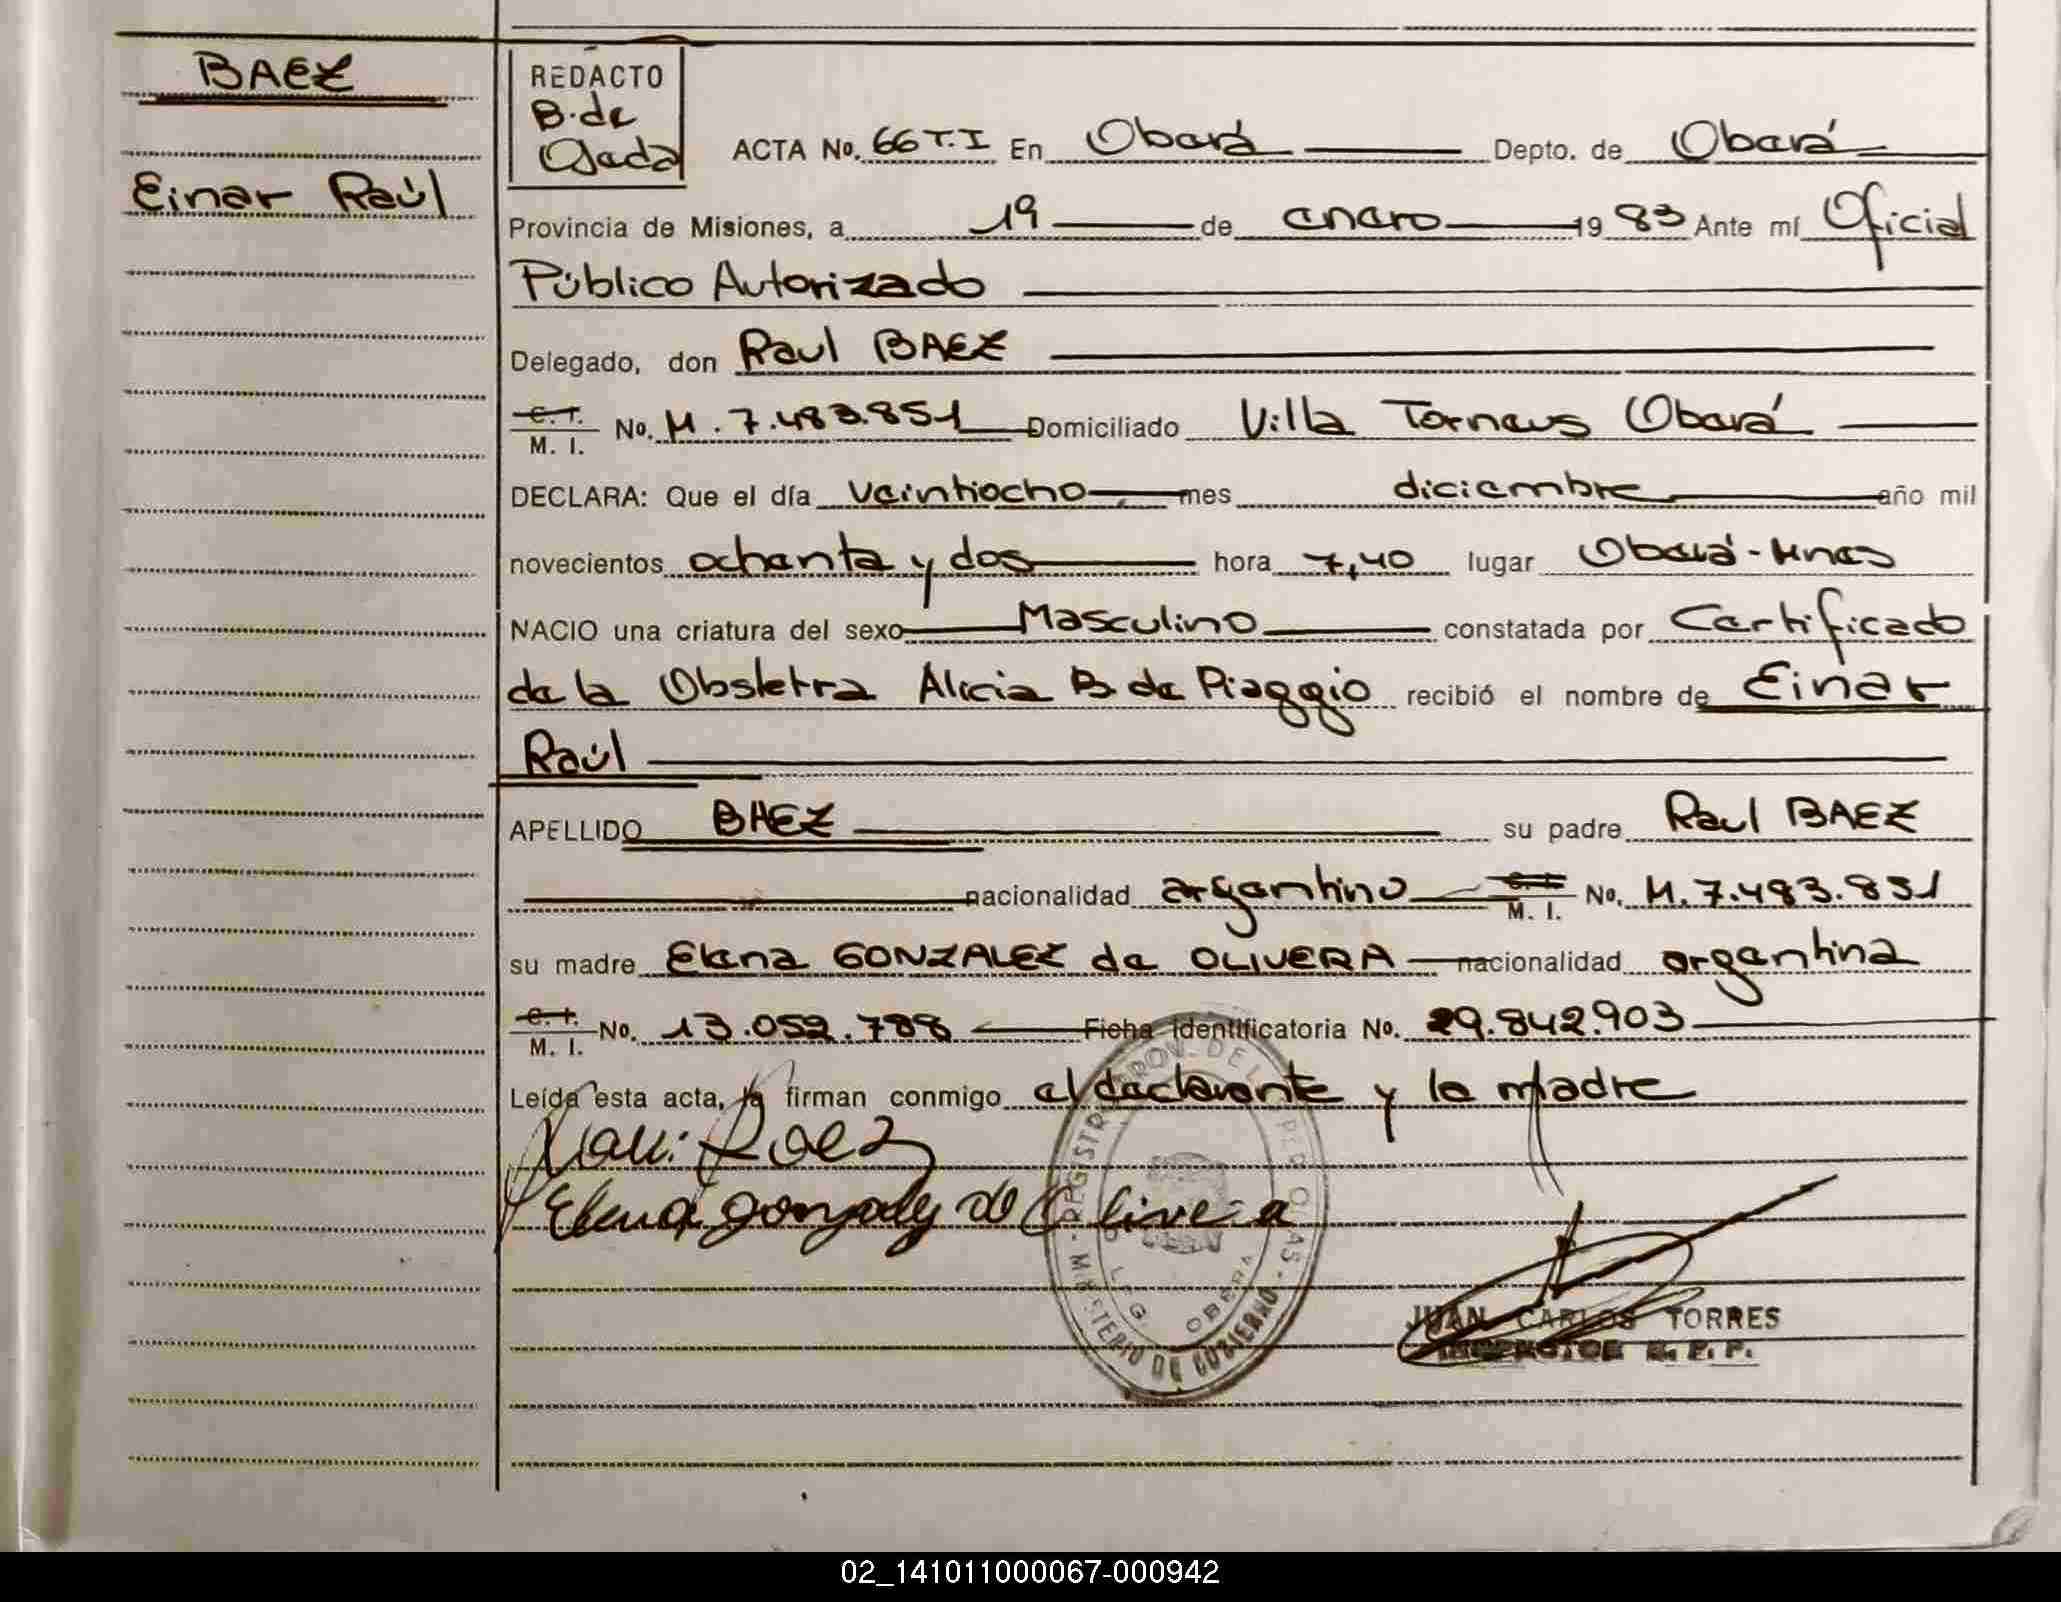 BAEZ
Einar Raúl
REDACTO
B. de
Ojeda
ACTA No. 66 T.I En Oberá Depto. de Oberá
Provincia de Misiones, a 19 de enero 1983 Ante mí Oficial
Público Autorizado
Delegado, don Raul BAEZ
C. I. M. I. No. M. 7.483.851 Domiciliado Villa Torneus Oberá
DECLARA: Que el día veintiocho mes diciembre año mil
novecientos ochenta y dos hora 7,40 lugar Oberá-Mnes
NACIO una criatura del sexo Masculino constatada por Certificado
de la Obstetra Alicia B. de Piaggio recibió el nombre de Einar
Raúl
APELLIDO BAEZ su padre Raul BAEZ
nacionalidad argentino C. I. M. I. No. M. 7.483.851
su madre Elena GONZALEZ de OLIVERA nacionalidad argentina
C. I. M. I. No. 13.052.788 Ficha Identificatoria No. 29.842.903
Leída esta acta, la firman conmigo el declarante y la madre
Raul Baez
Elena gonzalez de Olivera
REGISTRO PROV. DE L PERSONAS - MINISTERIO DE GOBIERNO
OBERA
JUAN CARLOS TORRES
INSPECTOR R. P. P.
02_141011000067-000942